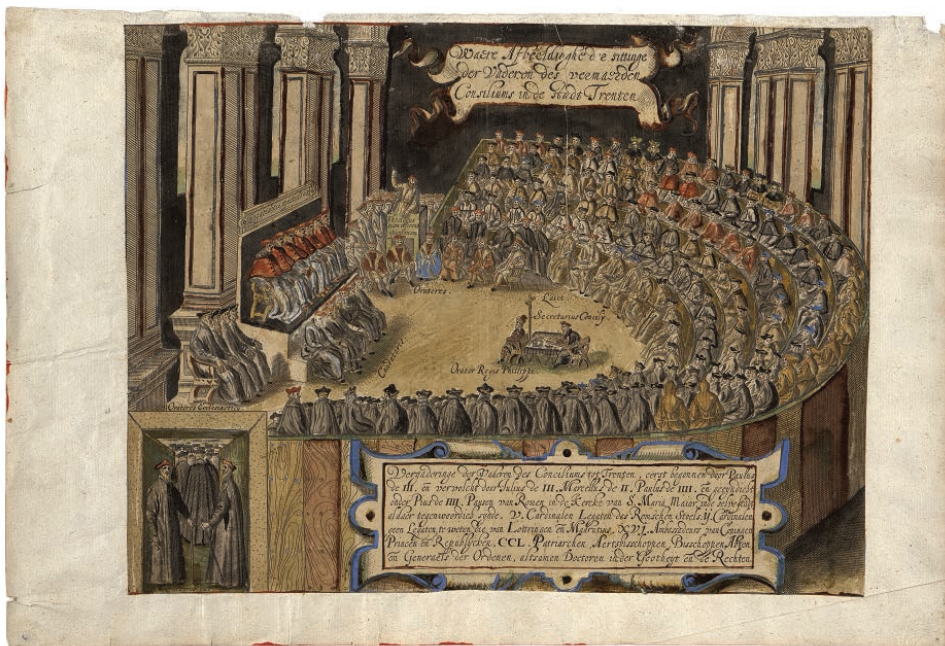 Waere Afbeeldinghe der sittinge
der Vaderen des vermaerden
Consiliums in de Stadt Trenten
Oratores
Lucet
Secretarius Concilij
Orator Regis Philippi
Oratores Ecclesiastici
Vergaderinge der Vaderen des Conciliums tot Trenten, eerst begonnen door Paulus
de III. en vervolcht door Julius de III. Marcellus de II. Paulus de IIII. en geeyndicht
onder Pius de IIII. Paus van Romen in de Kercke van S. Maria Maior
aldaer tegenwoordich synde. V. Cardinalen Legaten des Roomschen Stoels ij. Cardinalen
geen Legaten, te weten, die van Lottringen en Madrutius, XVI. Ambassadeurs van Coningen
Princen en Republycken, CCL. Patriarchen, Aertsbisschoppen, Bisschoppen, Abten,
en Generaels der Ordenen, altsamen Doctoren in der Godtheyt en de Rechten